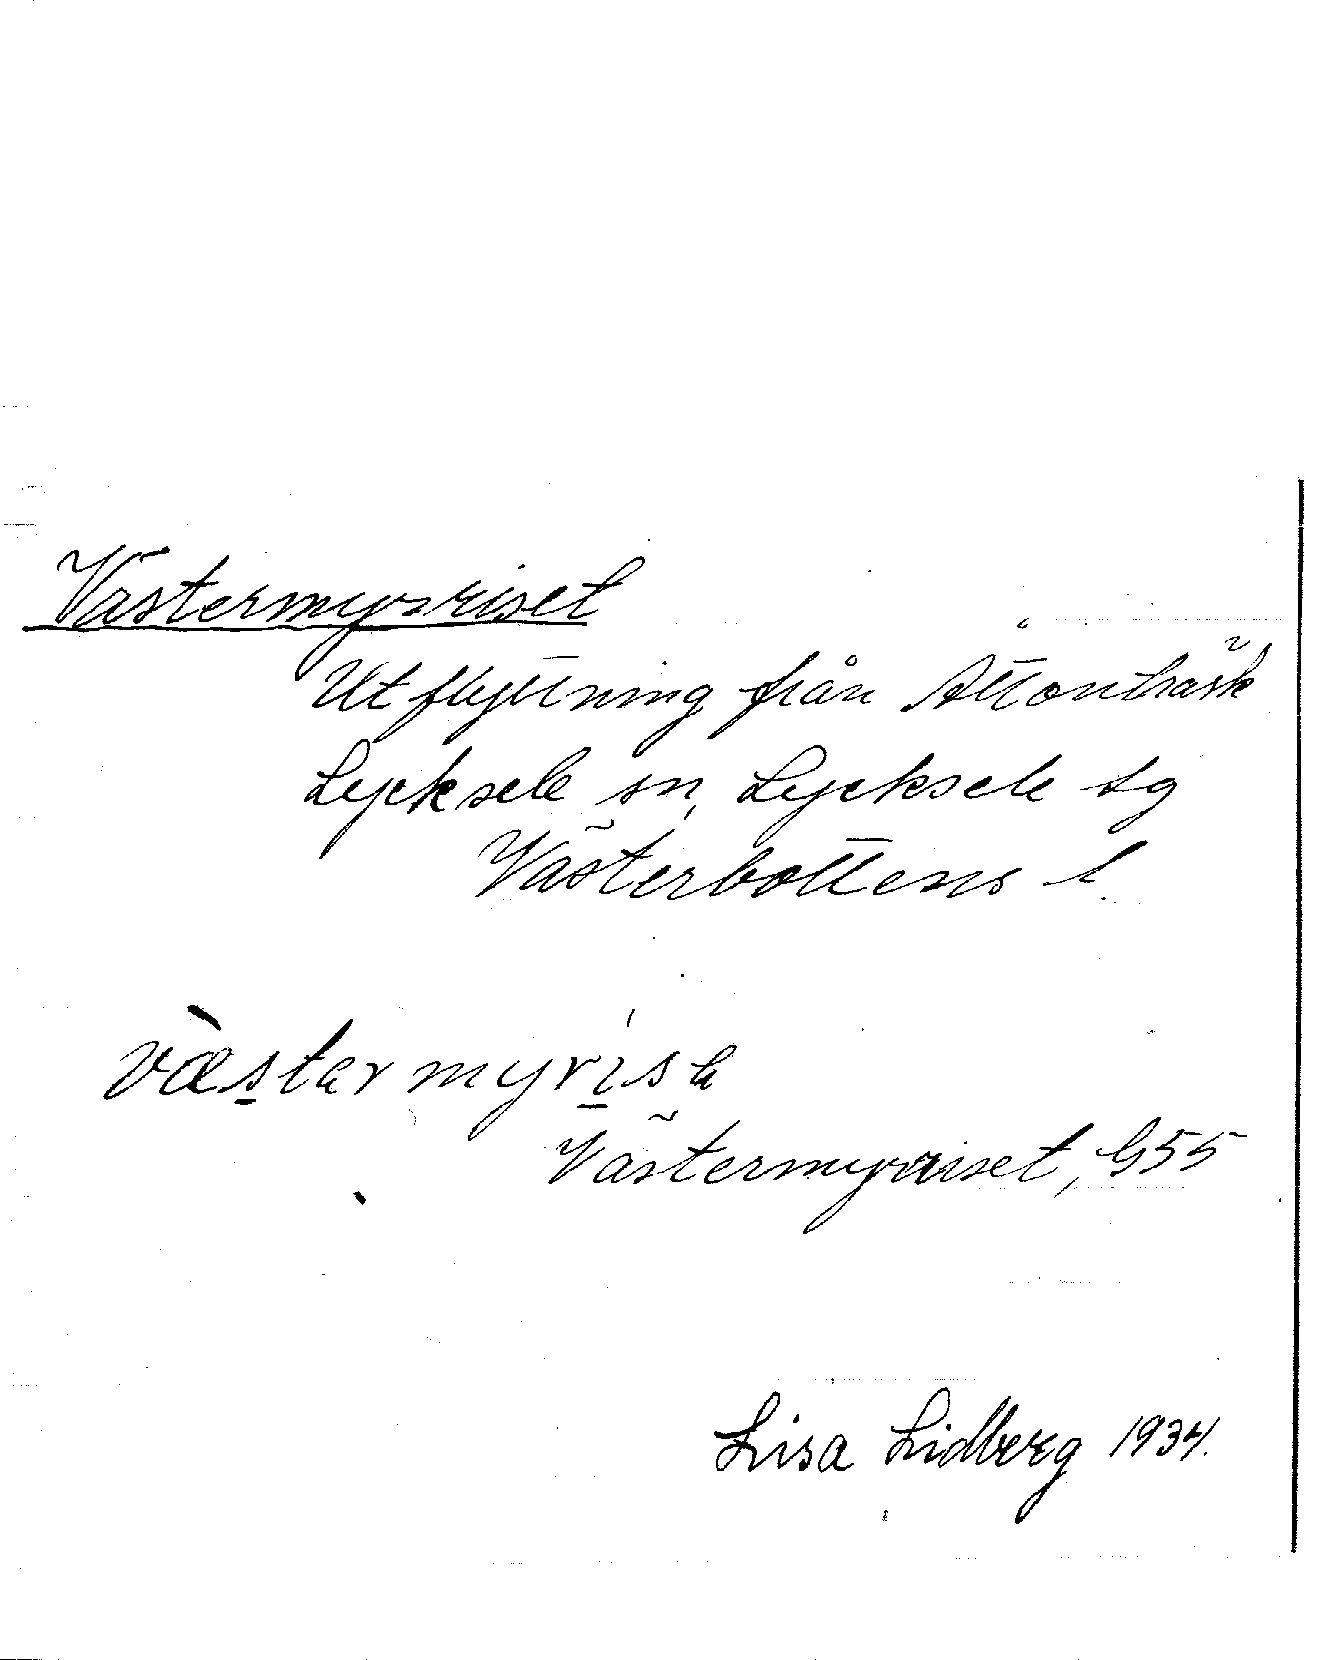 Västermyrriset
Utflyttning från Åttonträsk
Lycksele sn, Lycksele sg
Västerbottens l.
væ̀star myrísa
Västermyrriset, G55
Lisa Lidberg 1934.